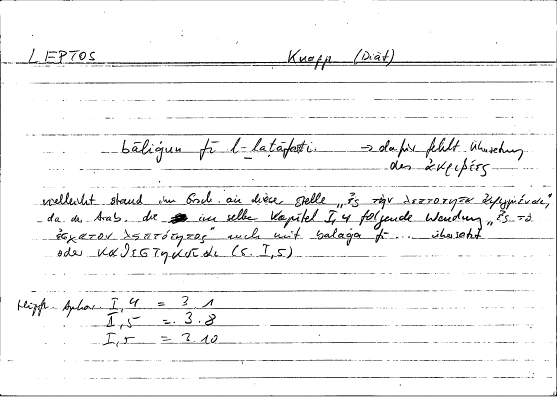 LEPTOS Knapp (Diät)
bāliġun fī l-laṭāfati. → dafür fehlt Übersetzung
des ἀκριβέες
vielleicht stand im Griech. an dieser Stelle „ἐς τὴν λεπτότητα
da. im Arab. die im selben Kapitel I,4 folgende Wendung „ἐς τὸ
ἔσχατον λεπτότητος“ auch mit balaġa fī ... übersetzt
oder (s. I,5)
Hippokr. Aphor. I,4 = 3.1
I,5 = 3.8
I,5 = 3.10